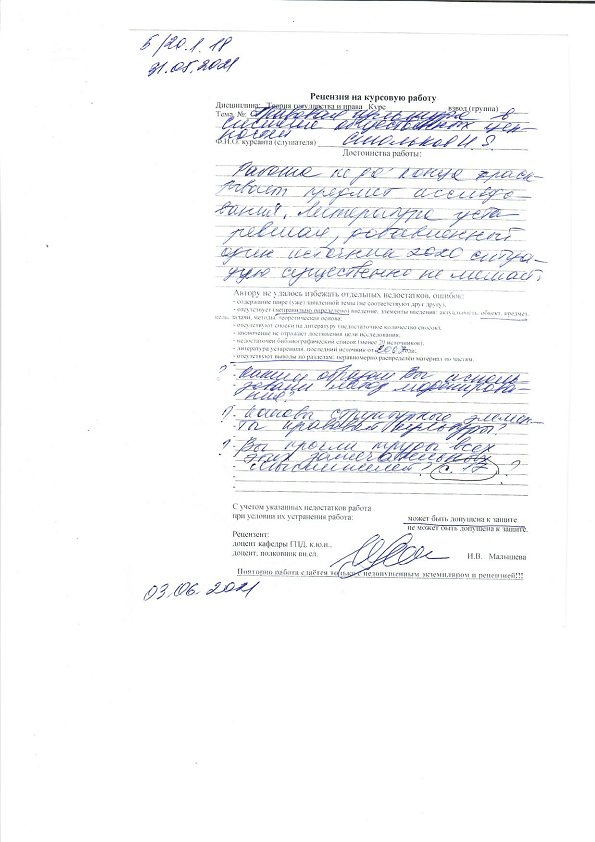 5/20.1.18
21.05.2021
Рецензия на курсовую работу
Дисциплина: Теория государства и права Курс взвод (группа)
Тема №: Правовая культура в
системе общественных цен-
ностей
Ф.И.О. курсанта (слушателя)
Достоинства работы:
Работа не до конца раск-
рывает предмет исследо-
вания, литература уста-
ревшая, добавленный
один источник 2020 ситуа-
цию существенно не меняет.
Автору не удалось избежать отдельных недостатков, ошибок:
- содержание шире (уже) заявленной темы (не соответствуют друг другу);
- отсутствует (неправильно определено) введение, элементы введения: актуальность, объект, предмет,
цель, задачи, методы, теоретическая основа;
- отсутствуют сноски на литературу (недостаточное количество сносок);
- заключение не отражает достижения цели исследования;
- недостаточен библиографический список (менее 20 источников);
- литература устаревшая, последний источник от 2007 года;
- отсутствуют выводы по разделам; неравномерно распределён материал по частям.
? - каким образом Вы исполь-
зовали метод моделирова-
ния?
? - каковы структурные элемен-
ты правовой культуры?
? - Вы прочли труды всех
этих замечательных
мыслителей? с. 17 ?
С учетом указанных недостатков работа
при условии их устранения работа:
может быть допущена к защите
не может быть допущена к защите.
Рецензент:
доцент кафедры ГПД, к.ю.н.,
доцент, полковник вн.сл.
И.В. Малышева
Повторно работа сдаётся только с недопущенным экземпляром и рецензией!!!
03.06.2021